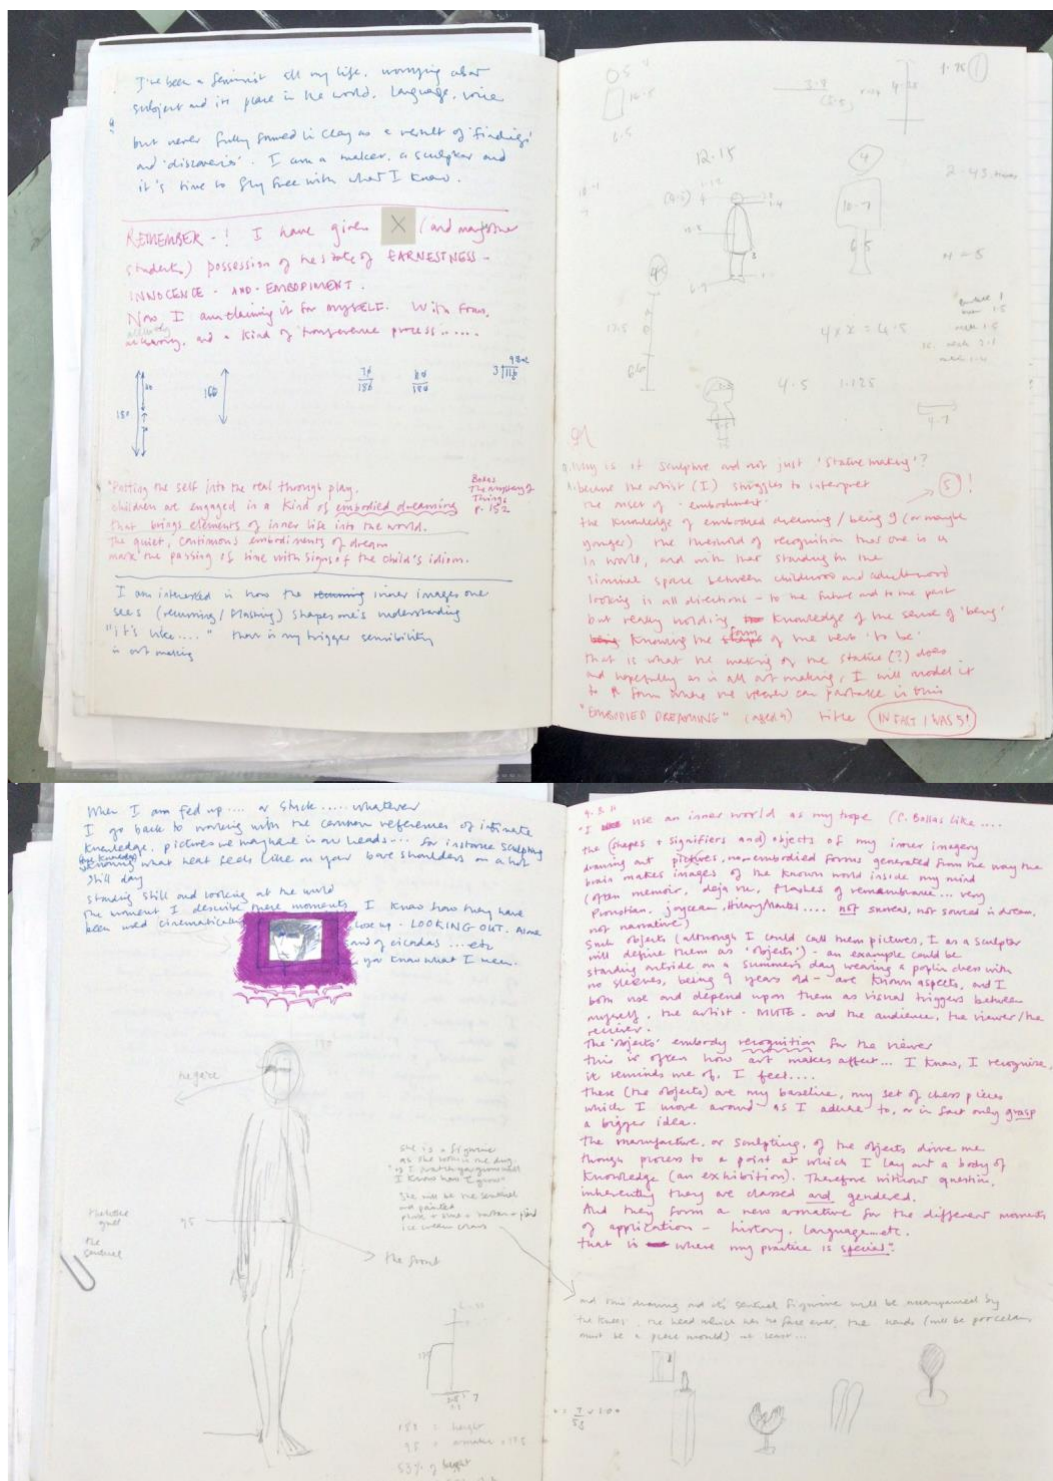 I've been a feminist all my life, worrying about
subject and its place in the world. Language, voice
but never fully formed in clay as a result of 'findings'
and 'discoveries'. I am a maker, a sculptor and
it's time to fly free with what I know.
REMEMBER - ! I have given X (and many other
students) possession of the state of EARNESTNESS -
INNOCENCE - AND - EMBODIMENT.
Now I am claiming it for MYSELF. With focus,
authoring, and a kind of transference process.....
180
160
"Putting the self into the real through play.
children are engaged in a kind of embodied dreaming
that brings elements of inner life into the world.
The quiet, continuous embodiments of dream
mark the passing of time with signs of the child's idiom.
Bollas
The Mystery of
Things
P. 152
I am interested in how the recurring inner images one
sees (recurring / flashing) shapes one's understanding
"It's like...." that is my trigger sensibility
in art making
1.75 1
12.15
4
10.7
6.5
2.43 times
4 x x = 4.5
4.5 1.125
4.7
Why is it sculpture and not just 'statue making'?
because the artist (I) struggles to interpret
the onset of - embodiment -
5!
the knowledge of embodied dreaming / being 9 (or maybe
younger) the threshold of recognition that one is in
in world, and with that standing in the
liminal space between childhood and adulthood
looking in all directions - to the future and to the past
but really holding knowledge of the sense of 'being'
being knowing the shape form of the verb 'to be'
that is what the making of the statue (?) does
and hopefully as in all art making, I will model it
to a form where the viewer can partake in this
"EMBODIED DREAMING" (aged 9) title IN FACT I WAS 5!
When I am fed up.... or stuck..... whatever
I go back to working with the common references of intimate
knowledge, pictures we may have in our heads... for instance sculpting
knowing what heat feels like on your bare shoulders on a hot
still day
standing still and looking at the world
The moment I describe these moments I know how they have
been used cinematically
close up - LOOKING OUT. Alone
sound of cicadas ... etc
you know what I mean.
she is a figurine
I know how I grow"
She will be the sentinel
the
sentinel
95
the front
180 = height
53% of height
"I use an inner world as my trope (C. Bollas like ....
the (shapes + signifiers and) objects of my inner imagery
drawing out pictures, non embodied forms generated from the way the
brain makes images of the known world inside my mind
(often memoir, deja vu, flashes of remembrance... very
Proustian, Joycean, Hilary Mantel .... not surreal, not sourced in dream,
not narrative)
Such objects (although I could call them pictures, I as a sculptor
will define them as 'objects') - an example could be
standing outside on a summer's day wearing a poplin dress with
no sleeves, being 9 years old - are known aspects, and I
both use and depend upon them as visual triggers between
myself, the artist - MUTE - and the audience, the viewer/the
receiver.
The 'objects' embody recognition for the viewer
this is often how art makes affect... I know, I recognise,
it reminds me of, I feel....
These (the objects) are my baseline, my set of chess pieces
which I move around as I adhere to, or in fact only grasp
a bigger idea.
The manufacture, or sculpting, of the objects drive me
through process to a point at which I lay out a body of
knowledge (an exhibition). Therefore without question,
inherently they are classed and gendered.
And they form a new armature for the different moments
of application - history, language...etc.
that is where my practice is special".
and this drawing and it's sentinel figurine will be accompanied by
the knees, the head which has no face ever, the hands (will be porcelain,
must be a piece mould) at least...